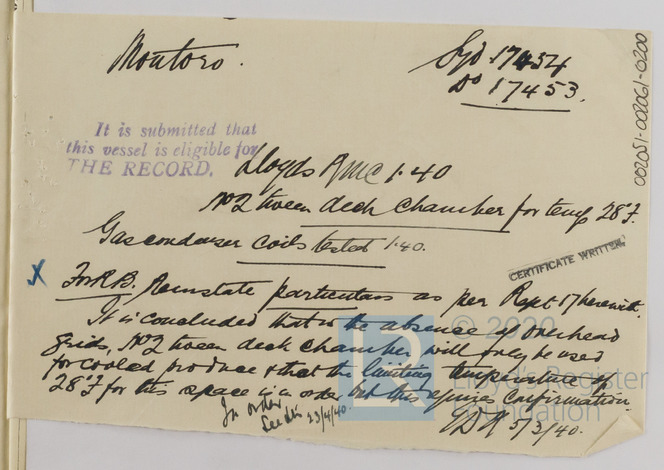 Montoro.
Syd. 17454
Do 17453.
002051-002061-0200
It is submitted that
this vessel is eligible for
THE RECORD.
Lloyds RMC 1.40
No2 tween deck chamber for temp 28°F.
Gas condenser coils tested 1.40.
CERTIFICATE WRITTEN
X For R.B. Reinstate particulars as per Rept. 17 herewith.
It is concluded that in the absence of overhead
grids, No2 tween deck chamber will only be used
for cooled produce & that the limiting temperature of
28°F for this space is in order but this requires confirmation
In order
23/4/40
5/3/40.
© 2020
LR
Lloyd's Register
Foundation